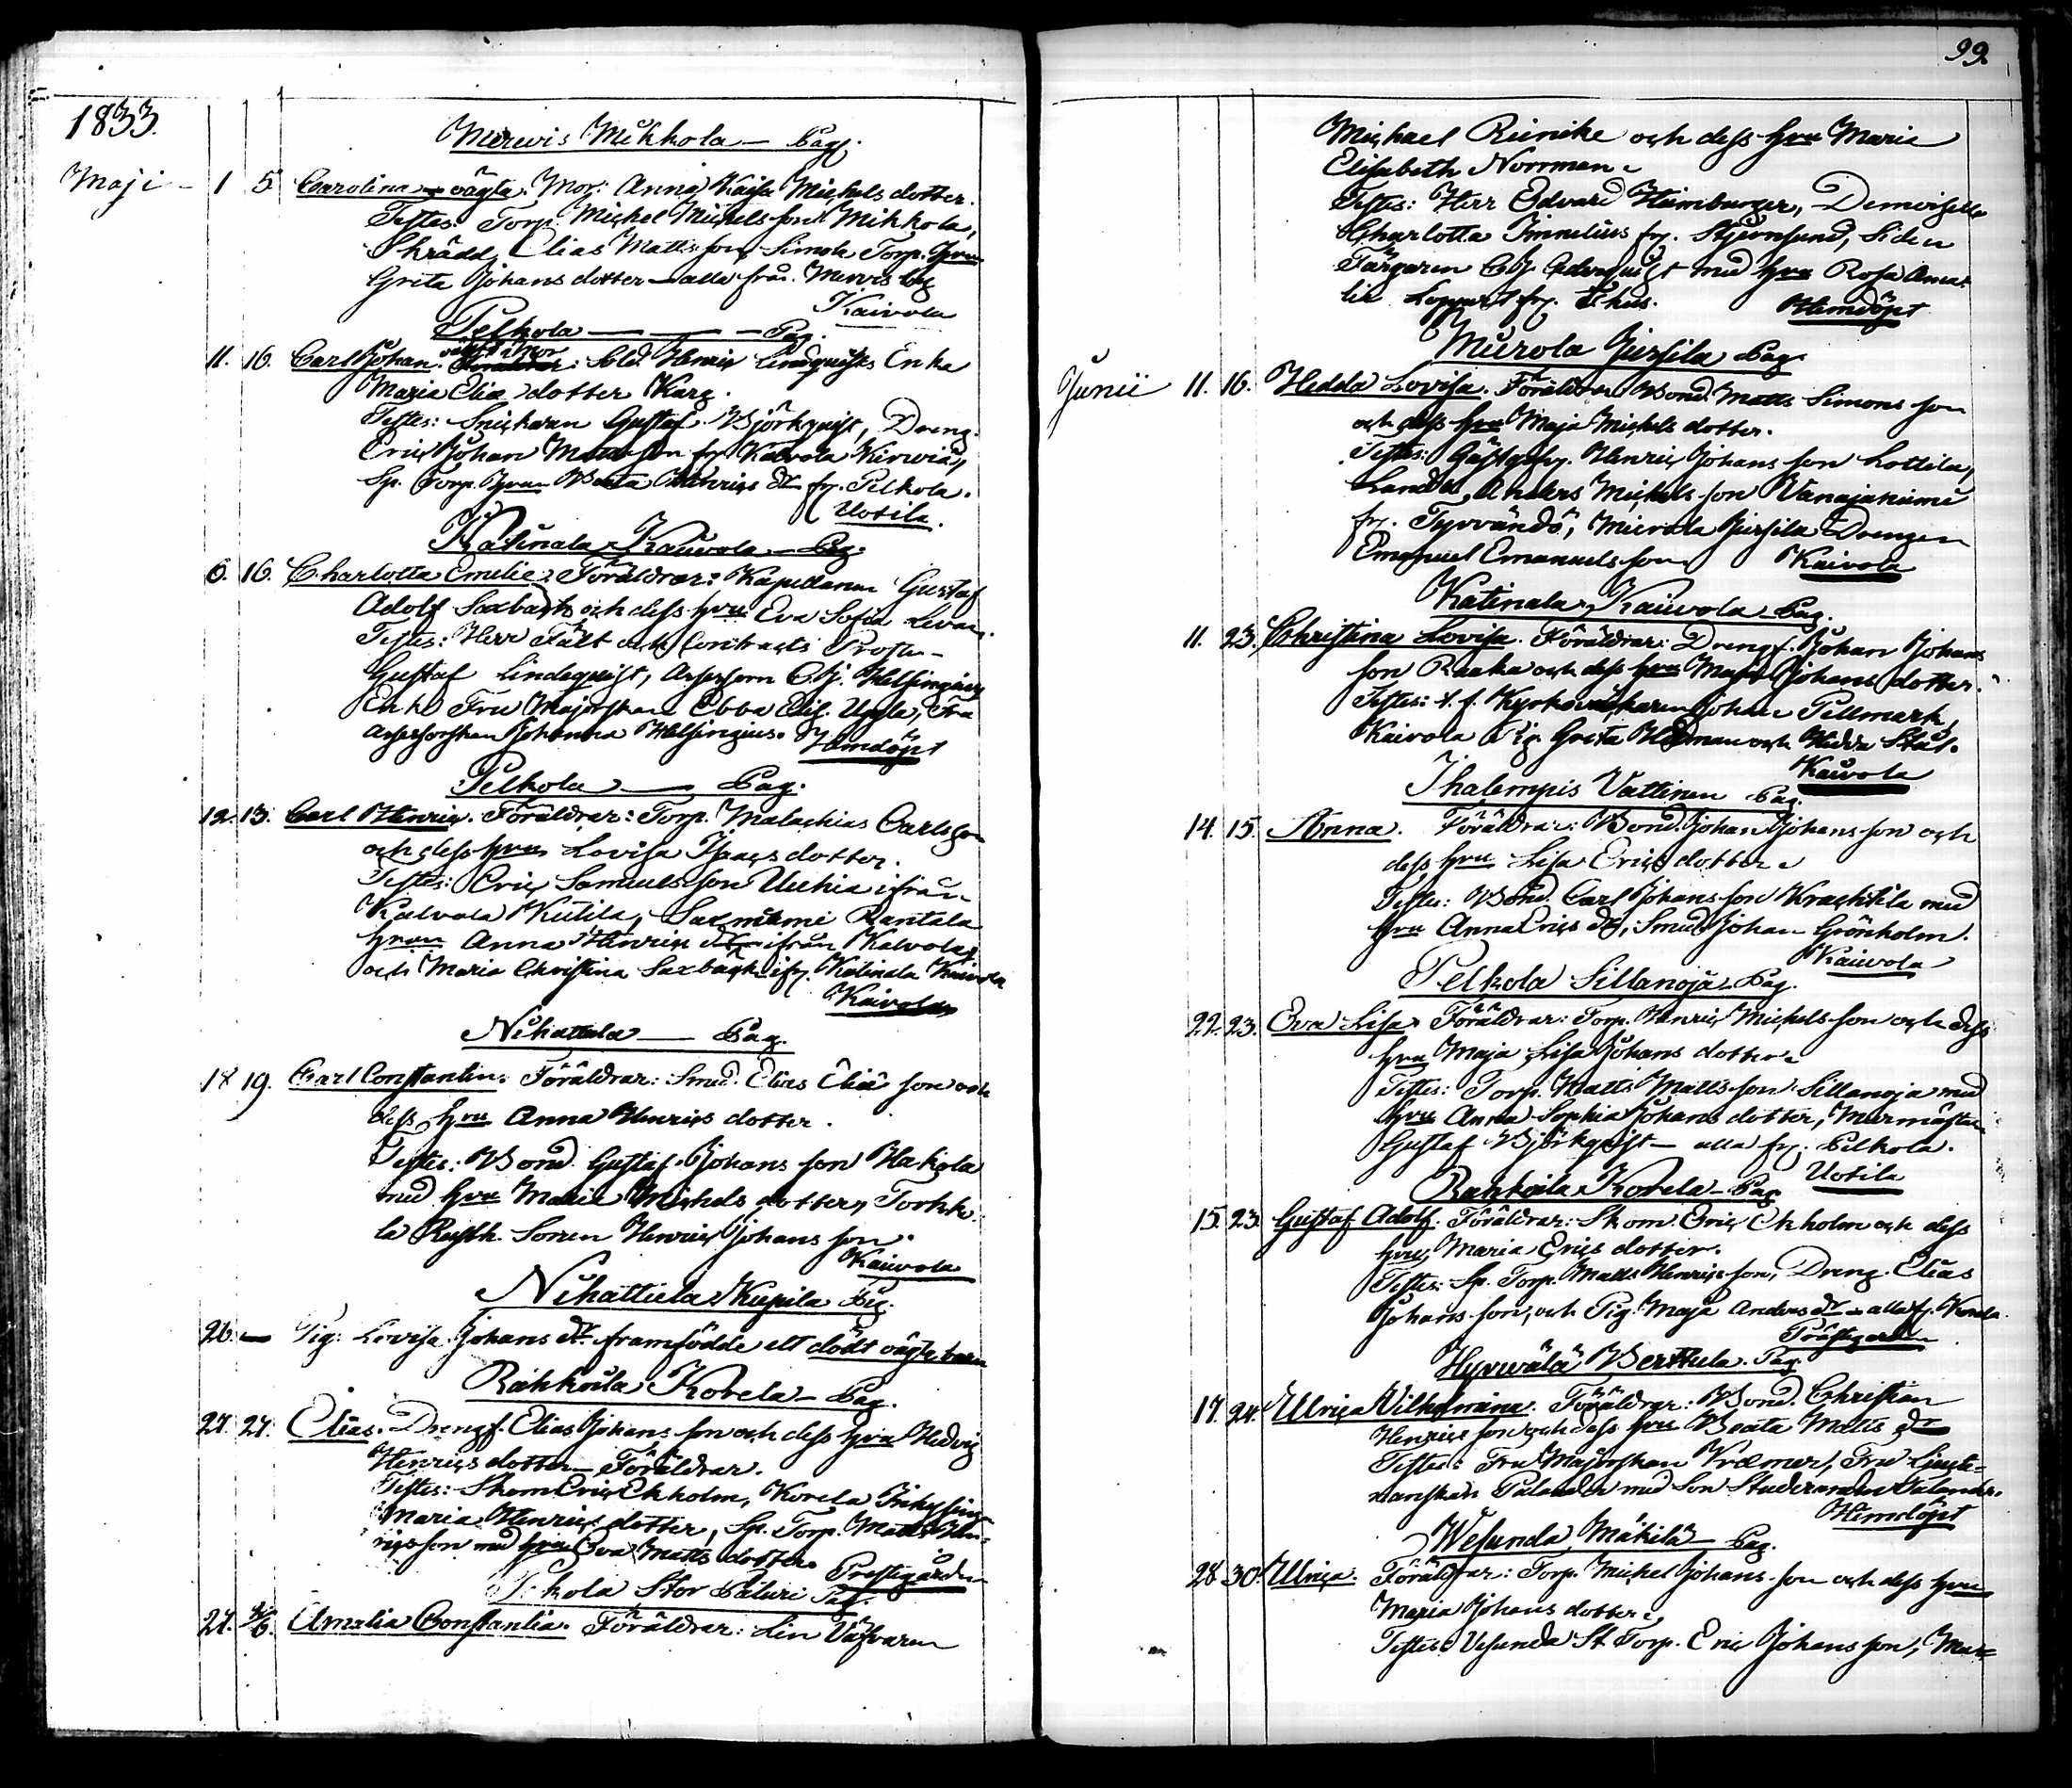 99.
1833.
Merwis Mikkola — Bag.
Maji - 1 5 Carolina oägta. Mor: Anna Kaisa Michels dotter.
Testes: Torp. Michel Michels son Mikkola,
Skrädd. Elias Matts son Simola Torp. hru
Greta Johans dotter — alla från Merwis by
Kaivola
Pelkola — — — Bag.
11. 16. Carl Johan. oägt. Mor: Sold. Henric Lindquists Enka
Maria Elias dotter Karg.
Testes: Snickaren Gustaf Björkquist, Dreng.
Eric Johan Matts son fr. Kalvola
Sp. Torp. hru Beata Henrics dr fr. Pelkola.
Uotila.
Katinala Kauvola — Bag.
6. 16. Charlotta Emelie. Föräldrar: Kapellanen Gustaf
Adolf Saxbäck och dess hru Eva Sofia Levan.
Testes: Herr Fält och Contracts Prosten
Gustaf Lindequist, Assessorn C. J. Helsingius,
Enk Fru Majorskan Ebba Elis. Uggla, Fru
Assessorskan Johanna Helsingius. Hemdöpt
Pelkola — Bag.
12. 13. Carl Henric. Föräldrar: Torp. Malachias Carlsson
och dess hru Lovisa Isacs dotter.
Testes: Eric Samuels son Uckia ifrån
Kalvola Kutila, Saxniemi Rantala
hrun Anna Henrics dr ifrån Kalvola,
och Maria Christina Saxbäck ifr. Katinala Kaivola
Kaivola
Nihattula — Bag.
18 19. Carl Constantin. Föräldrar: Smed. Elias Eliæ son och
dess hru Anna Henrics dotter.
Testes: Bond. Gustaf Johans son Hakola
med hru Maria Michels dotter, Torkko
la Rusth. Sonen Henric Johans son.
Kaivola
Nihattula Kupila Bag.
26. — Pig. Lovisa Johans dr framfödde ett dödt oägta barn
Rahkoila Korela — Bag.
27. 27. Elias. Drengf. Elias Johans son och dess hru Hedvig
Henrics dotter — Föräldrar.
Testes: Skom Eric Ekholm, Korela Inhysing
Maria Henrics dotter, Sp. Torp. Matts Hen-
rics son med hru Eva Matts dotter. Prestgården
Stor Paturi Bag.
27. 4/6. Amalia Constantia. Föräldrar: Lin Väfvaren
Michael Reinike och dess hru Maria
Elisabeth Norrman.
Testes: Herr Edvard Heimburger, Demoiselle
Charlotta Jinnelius fr. Stjernsund, Siden
Färgaren C. J. Cederquist med hru Rosa Ama-
lia Loppert fr. Thus. Hemdöpt
Mierola Jussila Bag.
Junii 11. 16. Hedda Lovisa. Föräldrar Bond. Matts Simons son
och dess hru Maja Michels dotter.
Testes: Gästgifv. Henric Johans son Lottila,
Landb. Anders Michels son Vanajaniemi
fr. Tyrväntö, Mierola Jussila Drengen
Emanuel Emanuels son. Kaivola
Katinala Kauvola Bag.
11. 23. Christina Lovisa. Föräldrar: Drengf. Johan Johans
son Raaka och dess hru Maja Johans dotter.
Testes: t. f. Kyrkoväktaren Johan Pellmark,
Kaivola Pig. Greta Hedman och Hedda Stål.
Kaivola
Ihalempis Vattinen Bag.
14. 15. Anna. Föräldrar: Bond. Johan Johans son och
dess hru Lisa Erics dotter.
Testes: Bond. Carl Johans son Krachtila med
hru Anna Erics dr, Smed Johan Grönholm.
Kaivola
Pelkola Sillanoja Bag.
22. 23. Eva Lisa. Föräldrar: Torp. Henric Michels son och dess
hru Maja Lisa Johans dotter.
Testes: Torp. Matts Matts son Sillanoja med
hru Anna Sophia Johans dotter, Murmästar
Gustaf Björkquist — alla fr. Pelkola.
Uotila
Rahkoila Korela — Bag.
15. 23. Gustaf Adolf. Föräldrar: Skom. Eric Ekholm och dess
hru Maria Erics dotter.
Testes: Sp. Torp. Matts Henrics son, Dreng. Elias
Johans son, och Pig. Maja Anders dr — alla f. Korela.
Prästgården
Hyrwälä Berttula. Bag.
17. 24. Ulrica Vilhelmina. Föräldrar: Bond. Christian
Henrics son och dess hru Beata Matts dr
Testes: Fru Majorskan Kræmer, Fru Lieute-
nanskan Palander med Son Studeranden Palander.
Hemdöpt
Wesunda Mäkilä — Bag.
28. 30. Ulrica. Föräldrar: Torp. Michel Johans son och dess hru
Maria Johans dotter.
Testes: Vesunda St Torp. Eric Johans son, Mar=